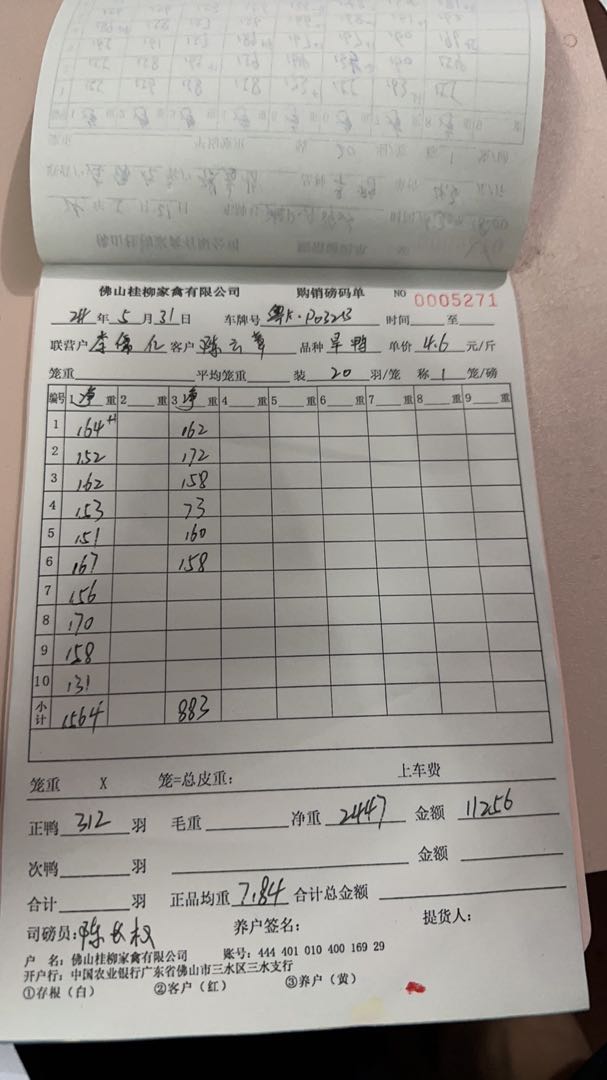 佛山桂柳家禽有限公司 购销磅码单 NO 0005271
24 年 5 月 31 日 车牌号 粤K·P03213 时间 至
联营户 李儒仁 客户 陈云 品种 旱鸭 单价 4.6 元/斤
笼重 平均笼重 装 20 羽/笼 称 1 笼/磅
编号 1 净 重 2 重 3 净 重 4 重 5 重 6 重 7 重 8 重 9 重
1 164 162
2 152 172
3 162 158
4 153 73
5 151 160
6 167 158
7 156
8 170
9 158
10 131
小计 1564 883
笼重 X 笼=总皮重: 上车费
正鸭 312 羽 毛重 净重 2447 金额 11256
次鸭 羽 金额
合计 羽 正品均重 7.84 合计总金额
司磅员: 陈长权 养户签名: 提货人:
户 名: 佛山桂柳家禽有限公司 账号: 444 401 010 400 169 29
开户行: 中国农业银行广东省佛山市三水区三水支行
①存根（白） ②客户（红） ③养户（黄）